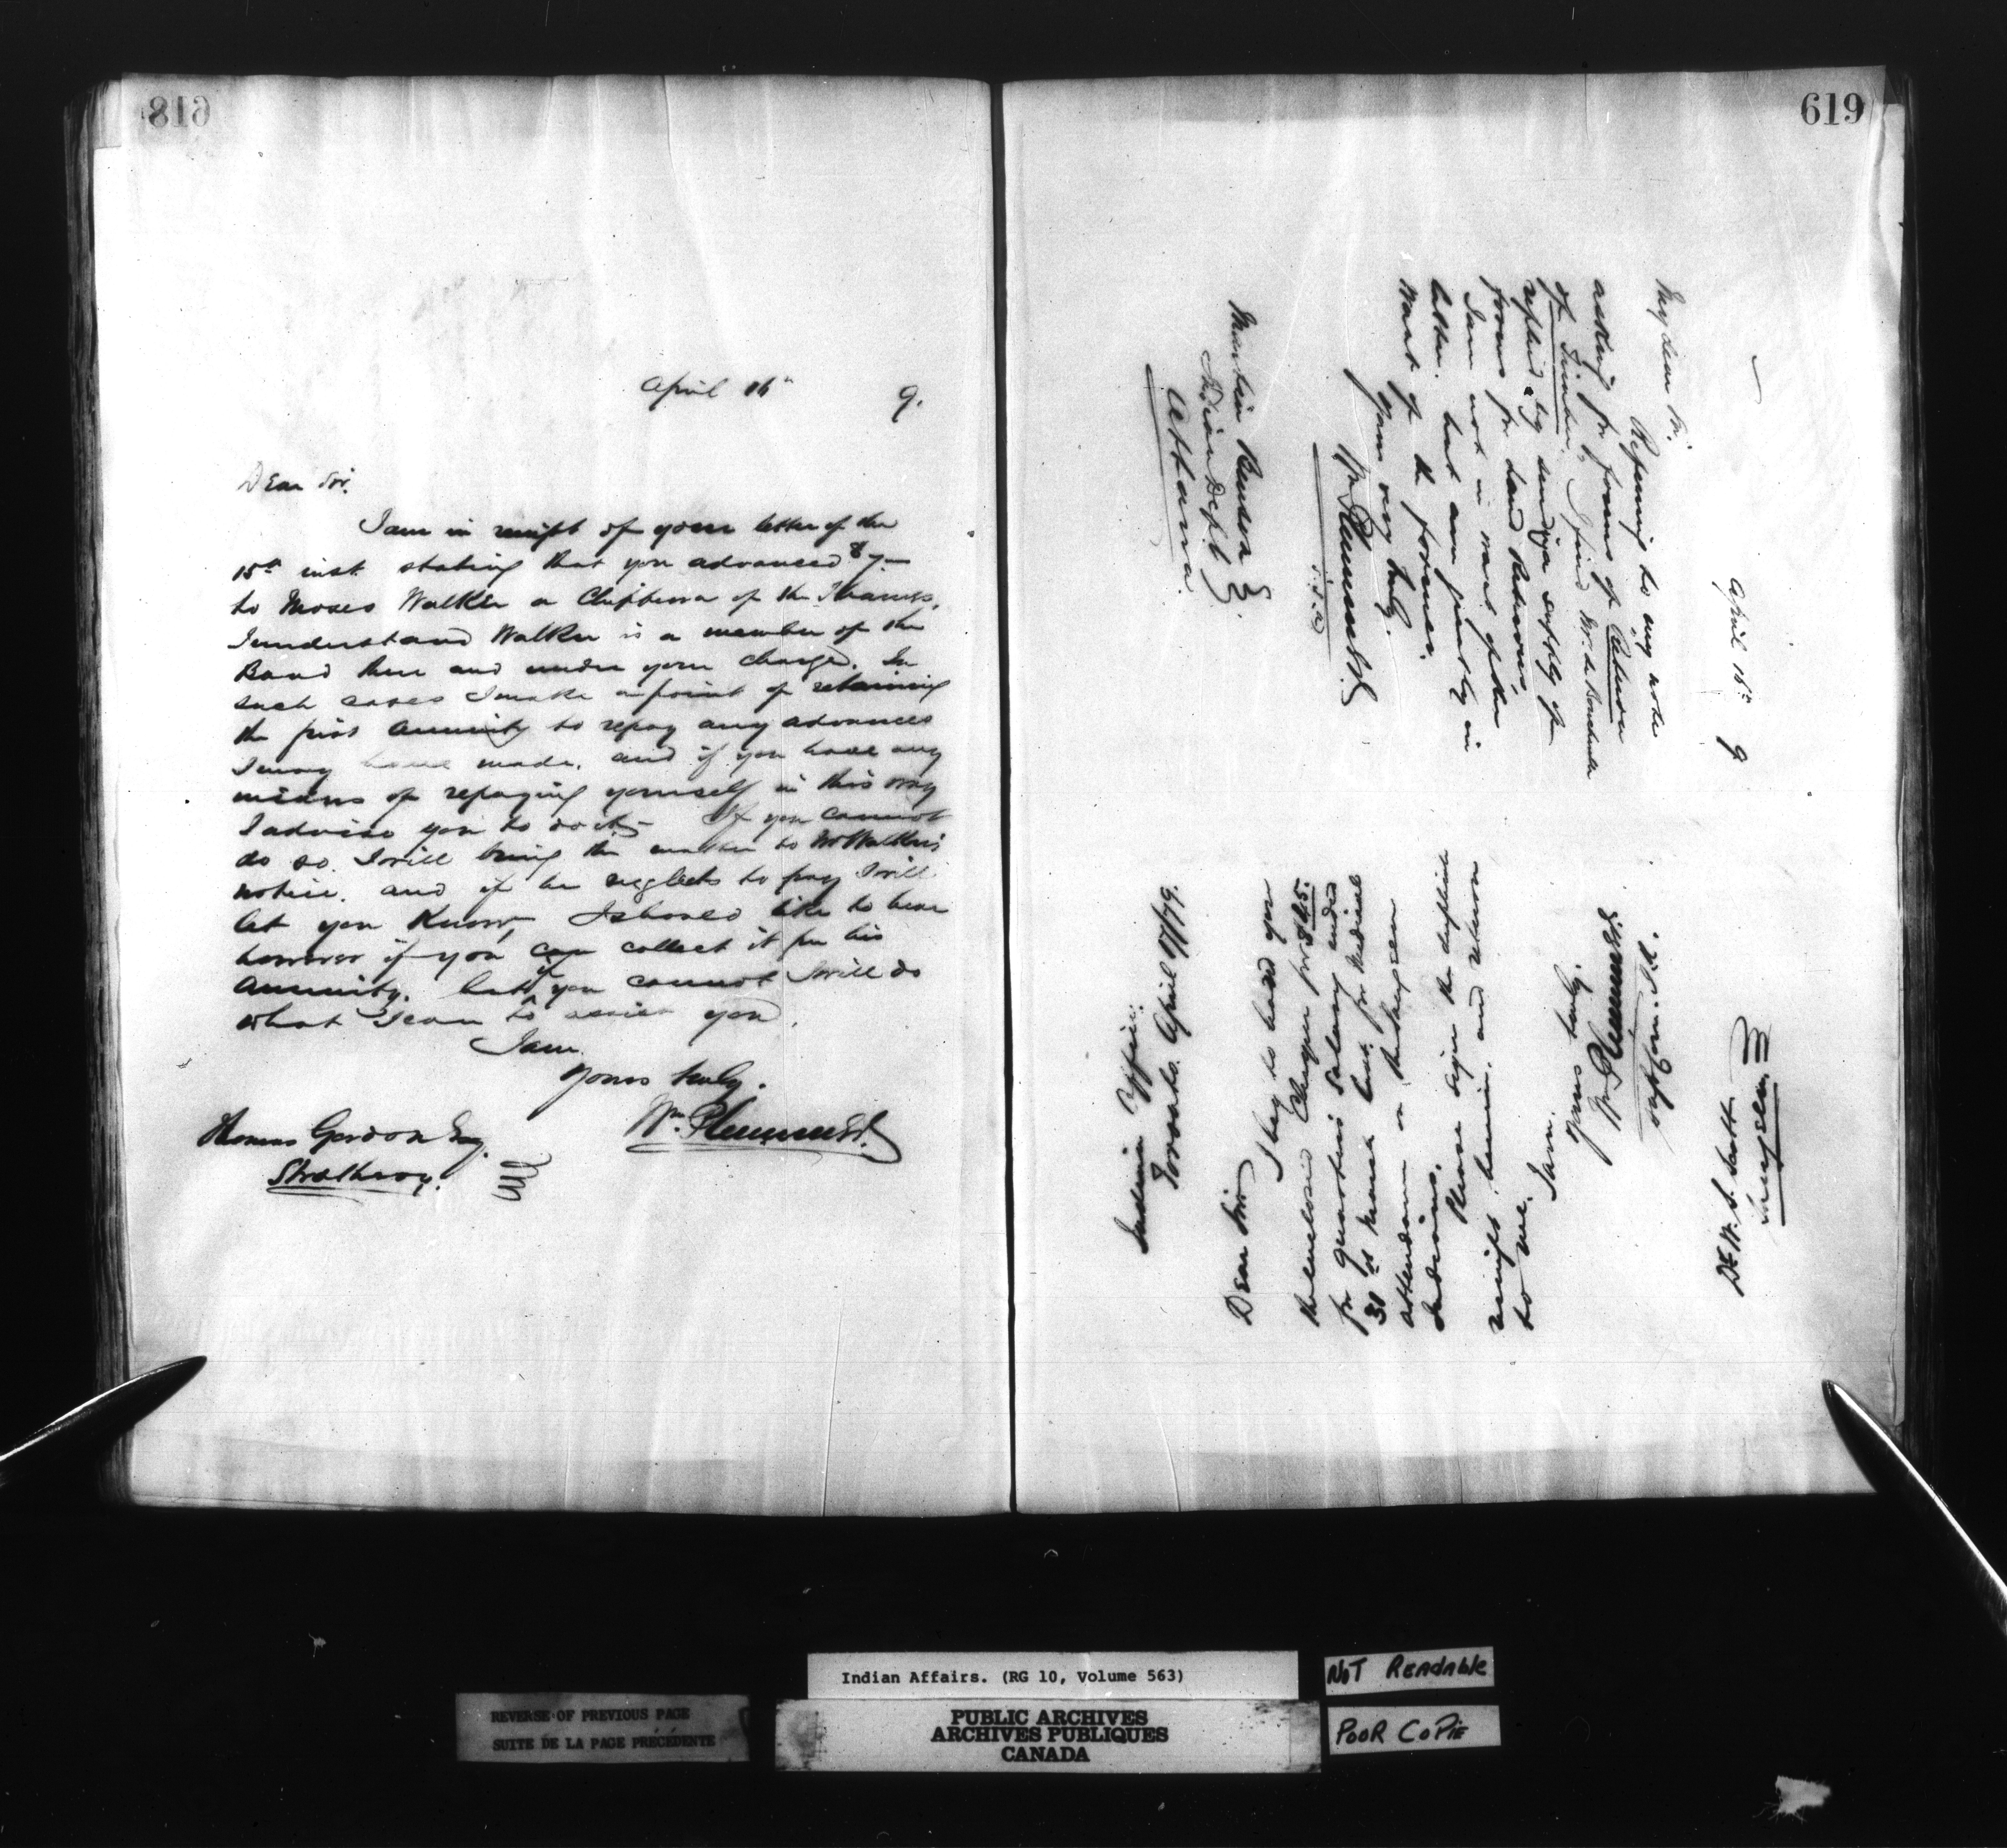 618
April 16th 9.
Dear Sir.
I am in receipt of your letter of the
15th inst. stating that you advanced $7-
to Moses Walker a Chippewa of the Thames.
I understand Walker is a member of the
Band there and under your charge. In
such cases I make a point of retaining
the first annuity to repay any advances
I may have made. and if you have any
means of repaying yourself in this way
I advise you to do it. If you cannot
do so. I will bring the matter to Walker's
notice. and if he neglects to pay I will
let you know, I should like to hear
however if you can collect it from his
annuity. but if you cannot I will do
what I can to assist you.
I am
Yours truly.
Wm. Plummer
Thomas Gordon Esq.
Strathroy.
619
April 16th 9
My dear Sir.
Referring to my note
asking for forms of "Return
of Timber", I find Mr.
replied by sending a supply of
forms for land Returns.
I am not in want of the
latter. but am greatly in
want of the former.
Yours very truly.
Wm Plummer
Martin Benson
Indian Dept
Ottawa.
Indian Office.
Toronto. April 17/79.
Dear Sir
I beg to hand you
the enclosed Cheque for $45.
for quarters salary ended
31st March last, for Medical
attendance on Saugeen
Indians.
Please sign the duplicate
receipts herein, and return
to me.
I am.
Yours truly.
Wm Plummer
Supt. Com. I.A.
Dr. W. S. Scott
Saugeen.
Indian Affairs. (RG 10, Volume 563)
NOT READABLE
REVERSE OF PREVIOUS PAGE
SUITE DE LA PAGE PRÉCÉDENTE
PUBLIC ARCHIVES
ARCHIVES PUBLIQUES
CANADA
POOR COPIE